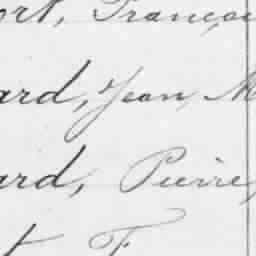 ort, Françoi
ard, Jean M
ard, Pierre,
t F